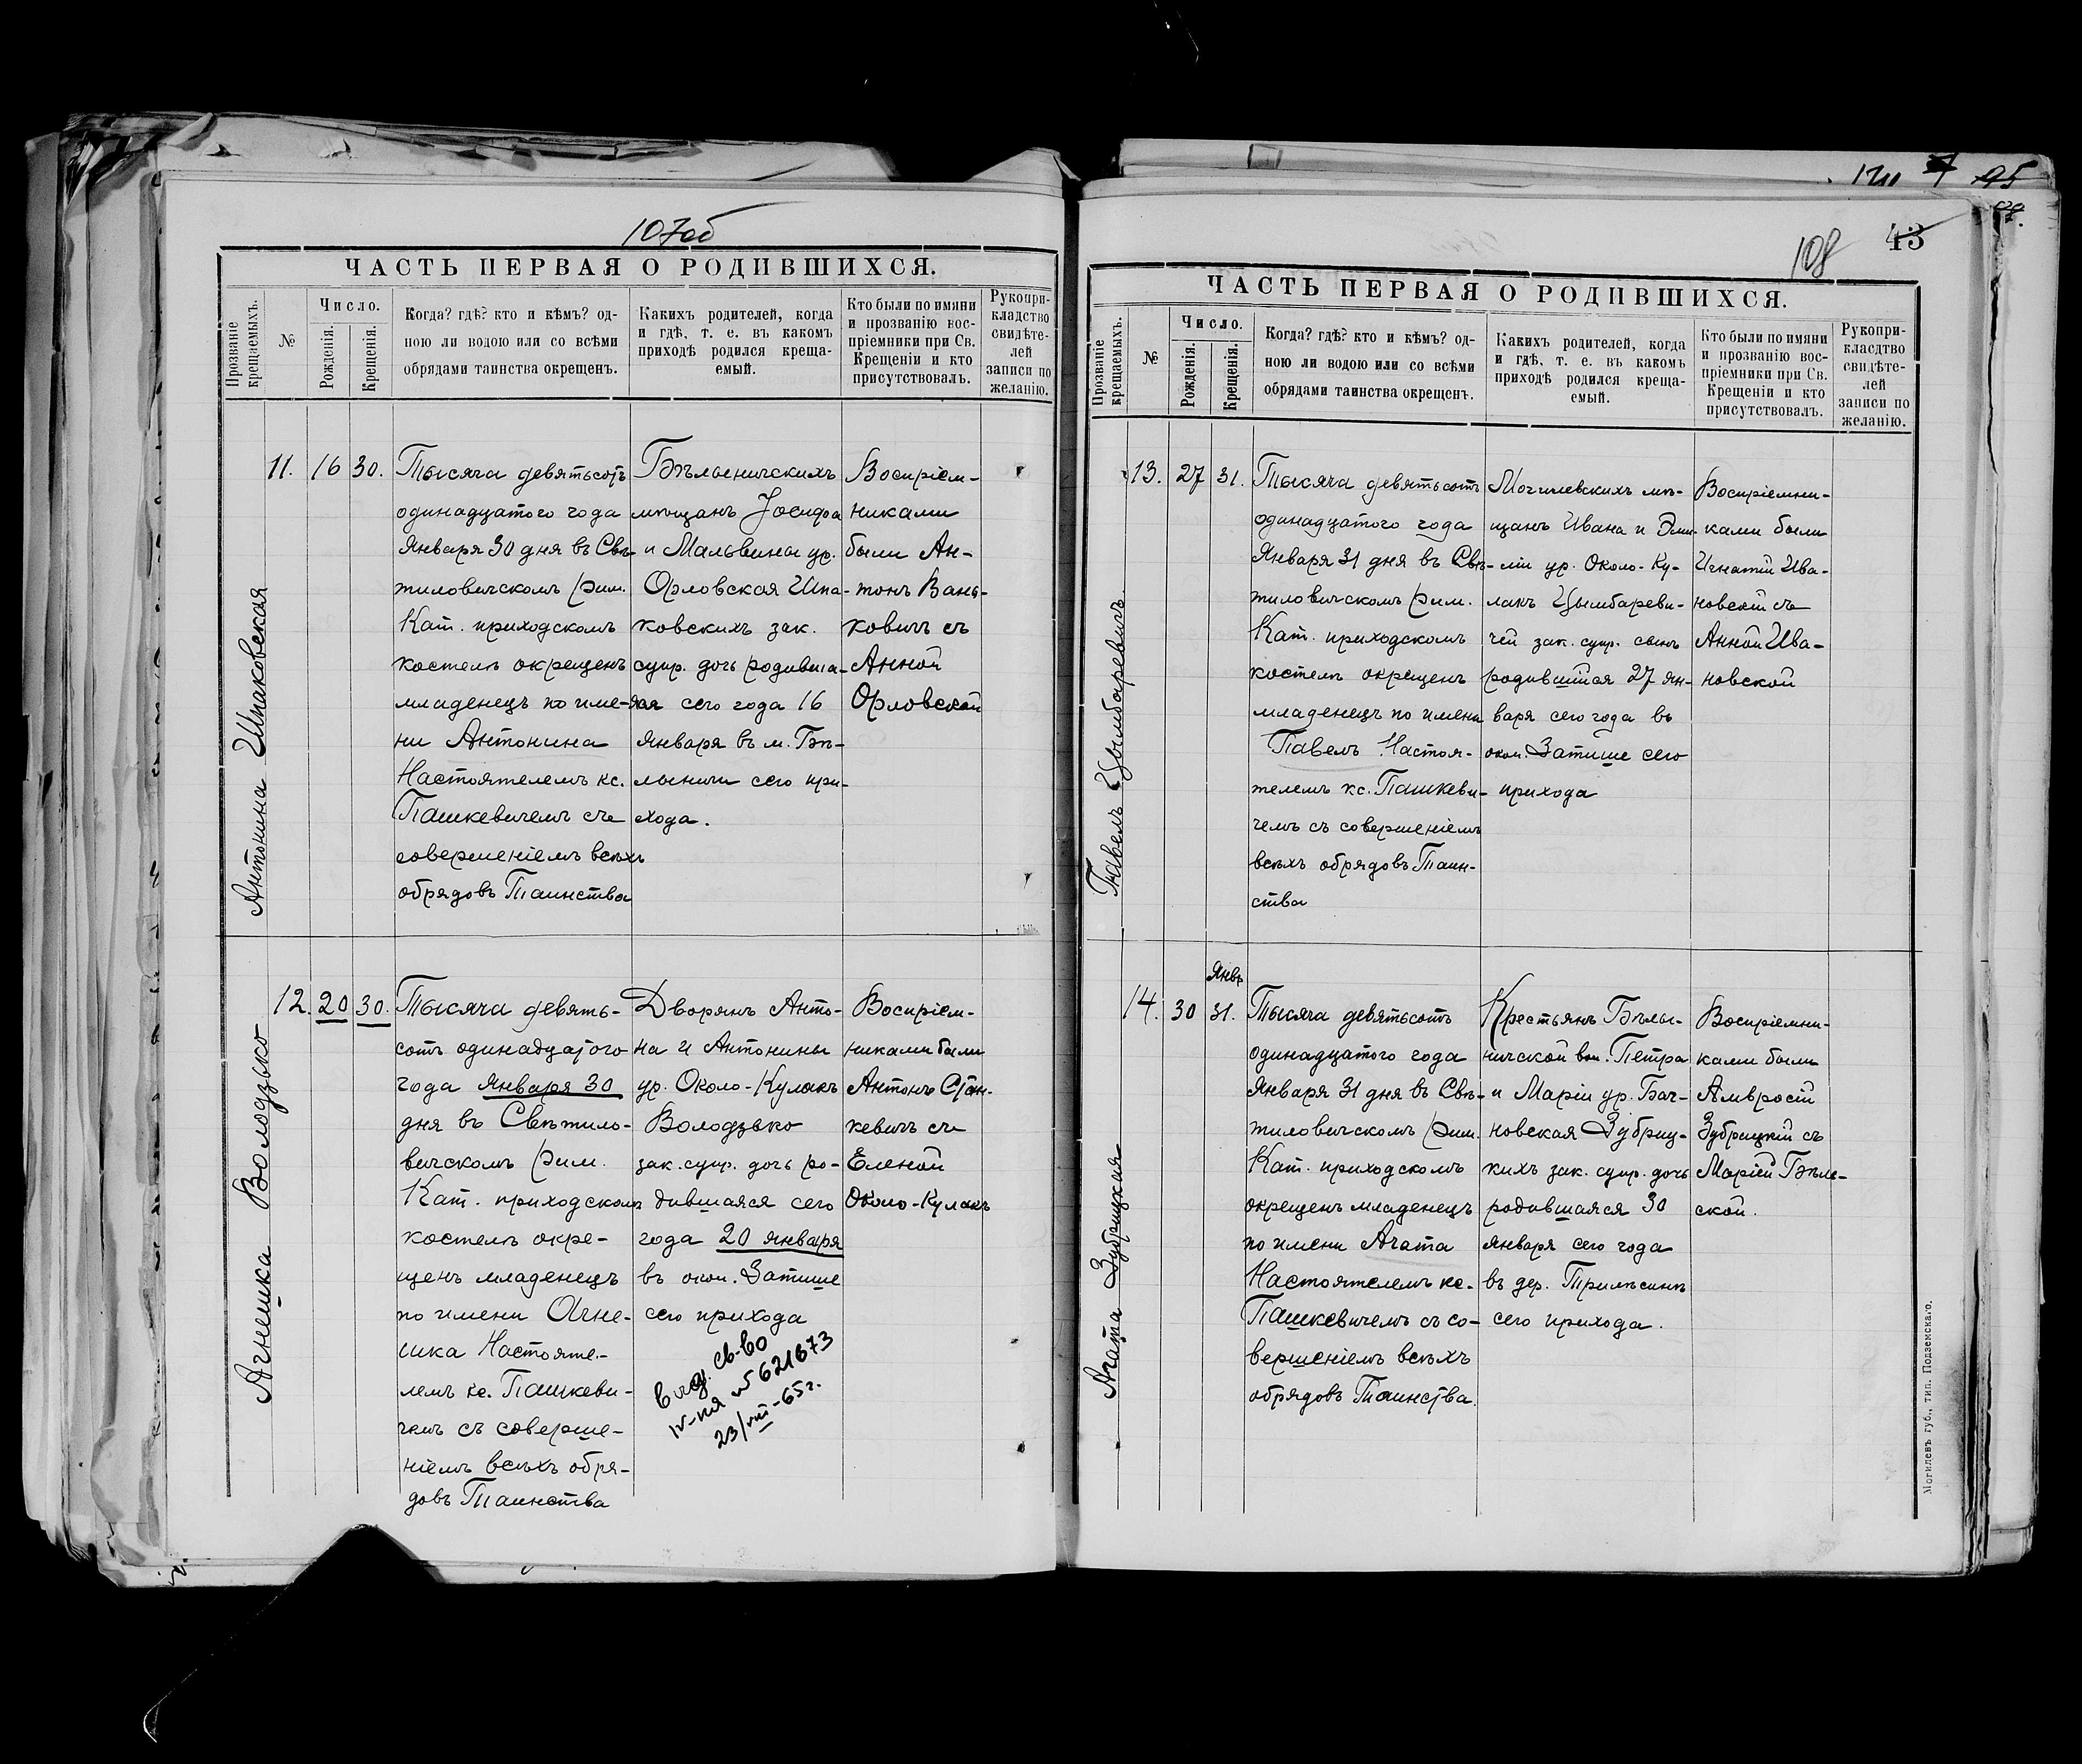 107об
ЧАСТЬ ПЕРВАЯ О РОДИВШИХСЯ.
Прозваніе крещаемыхъ.
№
Число.
Рожденія.
Крещенія.
Когда? гдѣ? кто и кѣмъ? од-
ною ли водою или со всѣми
обрядами таинства окрещенъ.
Какихъ родителей, когда
и гдѣ, т. е. въ какомъ
приходѣ родился креща-
емый.
Кто были по имяни
и прозванію вос-
пріемники при Св.
Крещеніи и кто
присутствовалъ.
Рукопри-
кладство
свидѣте-
лей
записи по
желанію.
Антонина Шпаковская
11. 16 30.
Тысяча девятьсотъ
одинадцатого года
Января 30 дня въ Свѣ-
тиловичскомъ Рим.
Кат. приходскомъ
костелѣ окрещенъ
младенецъ по име-
ни Антонина
Настоятелемъ кс.
Пашкевичемъ съ
совершеніемъ всѣхъ
обрядовъ Таинства
Бѣлыничскихъ
мѣщанъ Іосифа
и Мальвины ур.
Орловская Шпа-
ковскихъ зак.
супр. дочь родивша-
яся сего года 16
Января въ м. Бѣ-
лыничи сего при-
хода.
Воспріем-
никами
были Ан-
тонъ Вань-
ковичъ съ
Анной
Орловской
Агнешка Володзько
12. 20 30.
Тысяча девять-
сотъ одинадцатого
года Января 30
дня въ Свѣтило-
вичскомъ Рим.
Кат. приходскомъ
костелѣ окре-
щенъ младенецъ
по имени Агне-
шка Настояте-
лемъ кс. Пашкеви-
чемъ съ соверше-
ніемъ всѣхъ обря-
довъ Таинства
Дворянъ Анто-
на и Антонины
ур. Около-Кулакъ
Володзько
зак. супр. дочь ро-
дившаяся сего
года 20 января
въ окол. Затише
сего прихода
Выд. св-во
№ 621673
23/VIII-65г.
Воспріем-
никами были
Антонъ Стан-
кевичъ съ
Еленой
Около-Кулакъ
108
43
ЧАСТЬ ПЕРВАЯ О РОДИВШИХСЯ.
Прозваніе крещаемыхъ.
№
Число.
Рожденія.
Крещенія.
Когда? гдѣ? кто и кѣмъ? од-
ною ли водою или со всѣми
обрядами таинства окрещенъ.
Какихъ родителей, когда
и гдѣ, т. е. въ какомъ
приходѣ родился креща-
емый.
Кто были по имяни
и прозванію вос-
пріемники при Св.
Крещеніи и кто
присутствовалъ.
Рукопри-
класдтво
свидѣте-
лей
записи по
желанію.
Павелъ Цымбаревичъ
13. 27 31.
Тысяча девятьсотъ
одинадцатого года
Января 31 дня въ Свѣ-
тиловичскомъ Рим.
Кат. приходскомъ
костелѣ окрещенъ
младенецъ по имени
Павелъ Настоя-
телемъ кс. Пашкеви-
чемъ съ совершеніемъ
всѣхъ обрядовъ Таин-
ства
Могилевскихъ мѣ-
щанъ Ивана и Эми-
ліи ур. Около-Ку-
лакъ Цымбареви-
чей зак. супр. сынъ
родившійся 27 ян-
варя сего года въ
окол. Затише сего
прихода
Воспріемни-
ками были
Игнатій Ива-
новскій съ
Анной Ива-
новской
Агата Зубрицкая
Янвр
14. 30 31.
Тысяча девятьсотъ
одинадцатого года
Января 31 дня въ Свѣ-
тиловичскомъ Рим.
Кат. приходскомъ
окрещенъ младенецъ
по имени Агата
Настоятелемъ кс.
Пашкевичемъ съ со-
вершеніемъ всѣхъ
обрядовъ Таинства.
Крестьянъ Бѣлы-
ничской вол. Петра
и Маріи ур. Бач-
новская Зубриц-
кихъ зак. супр. дочь
родившаяся 30
января сего года
въ дер. Трилѣсинѣ
сего прихода.
Воспріемни-
ками были
Амвросій
Зубрицкій съ
Маріей Бѣль-
ской.
Могилевъ губ., тип. Подземскаго.